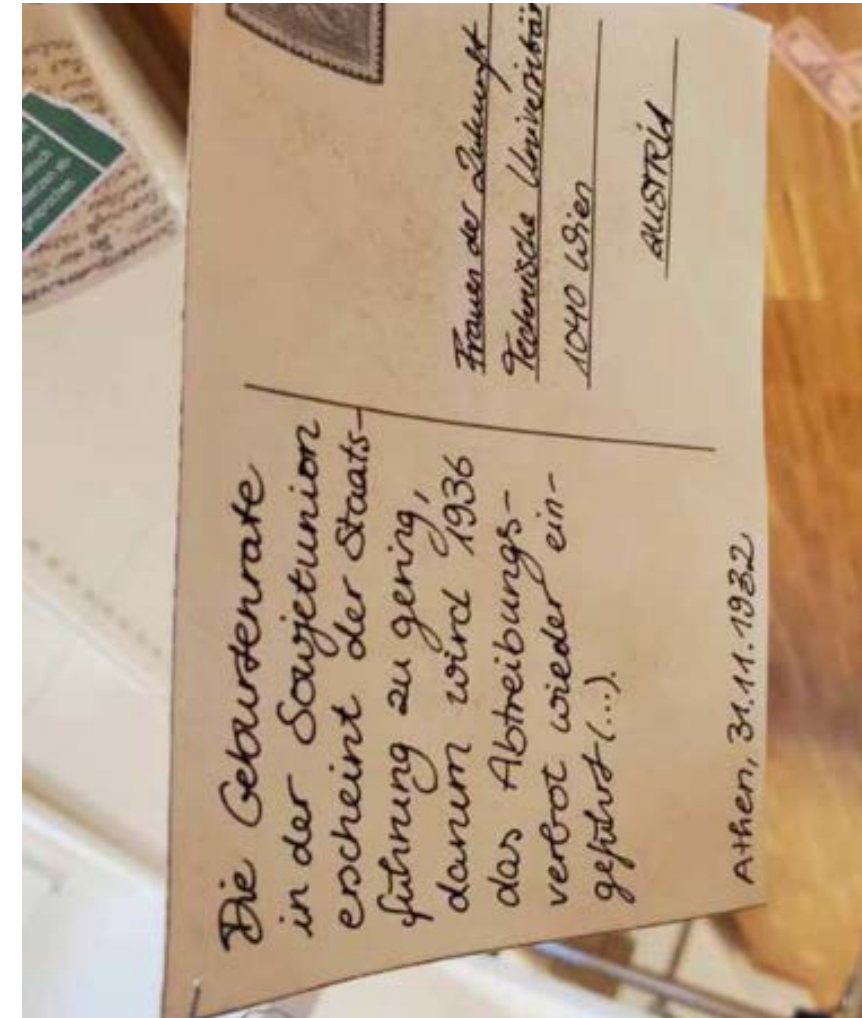 Die Geburtenrate
in der Sowjetunion
erscheint der Staats-
führung zu gering,
darum wird 1936
das Abtreibungs-
verbot wieder ein-
geführt (...).
Athen, 31.11.1932
Frauen der Zukunft
Technische Universitä
1040 Wien
AUSTRIA